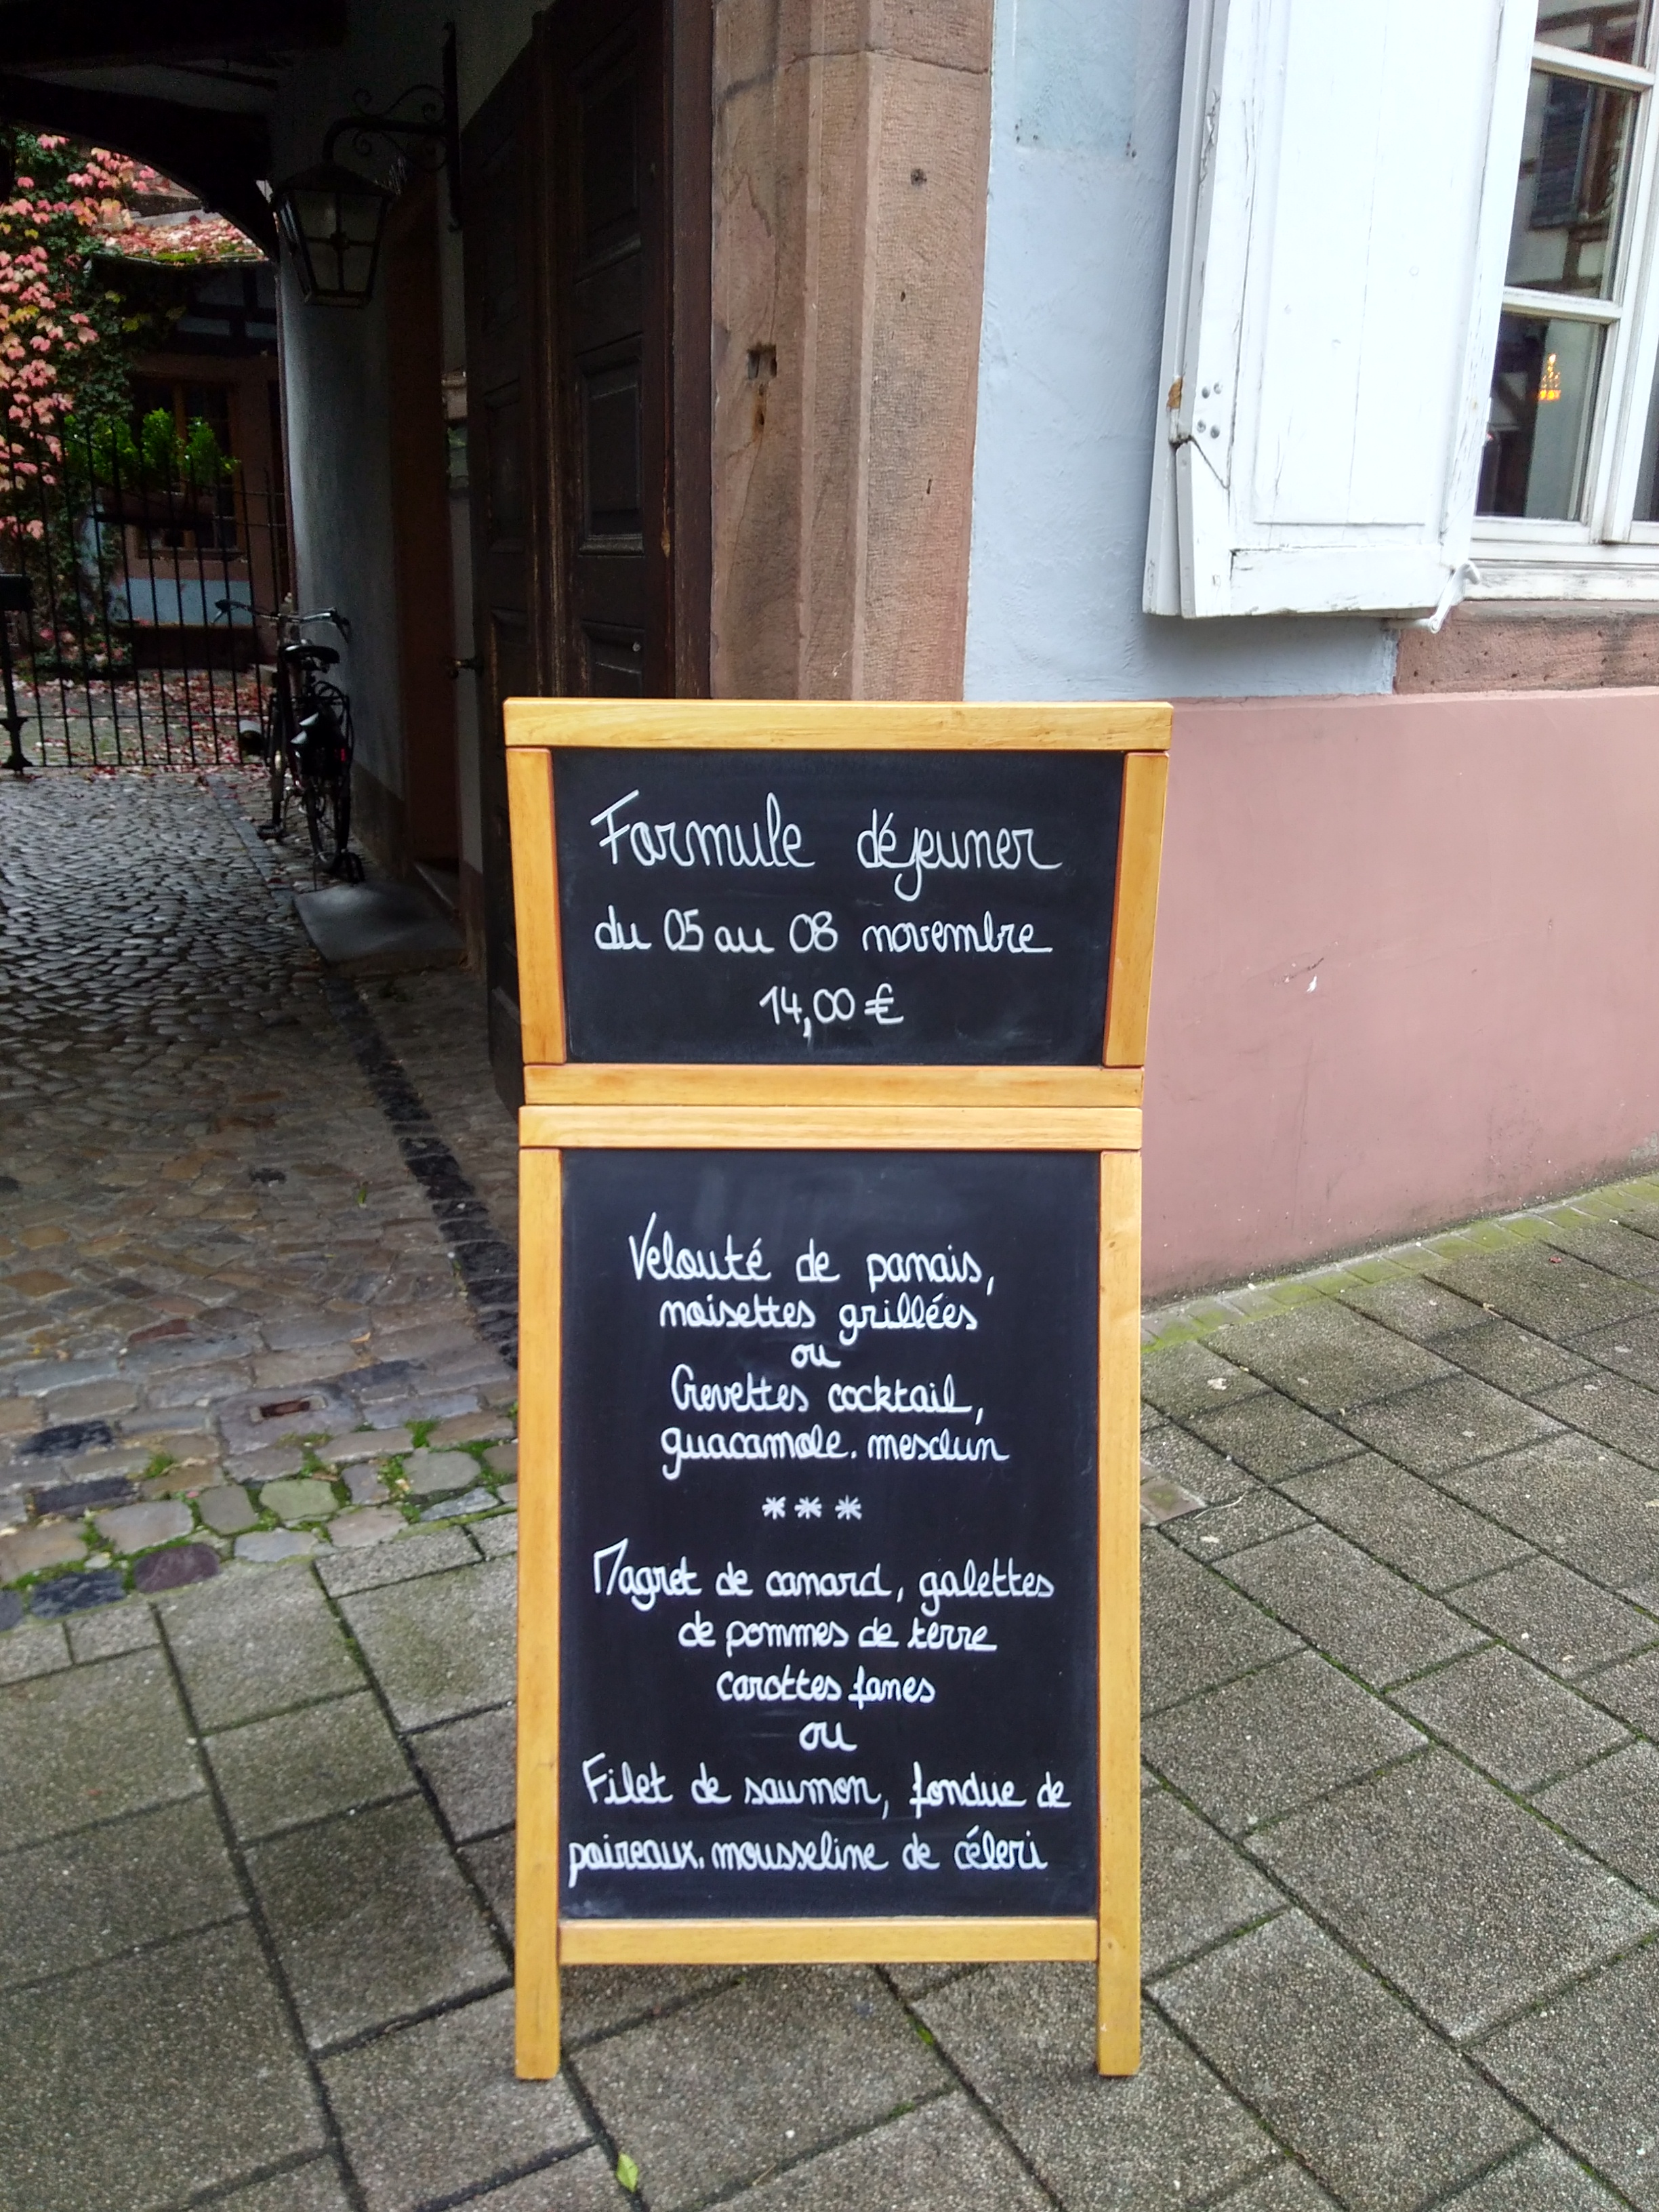 Formule déjeuner
du 05 au 08 novembre
14,00 €
Velouté de panais,
noisettes grillées
ou
Crevettes cocktail,
guacamole. mesclun
***
Magret de canard, galettes
de pommes de terre
carottes fanes
ou
Filet de saumon, fondue de
poireaux. mousseline de céleri